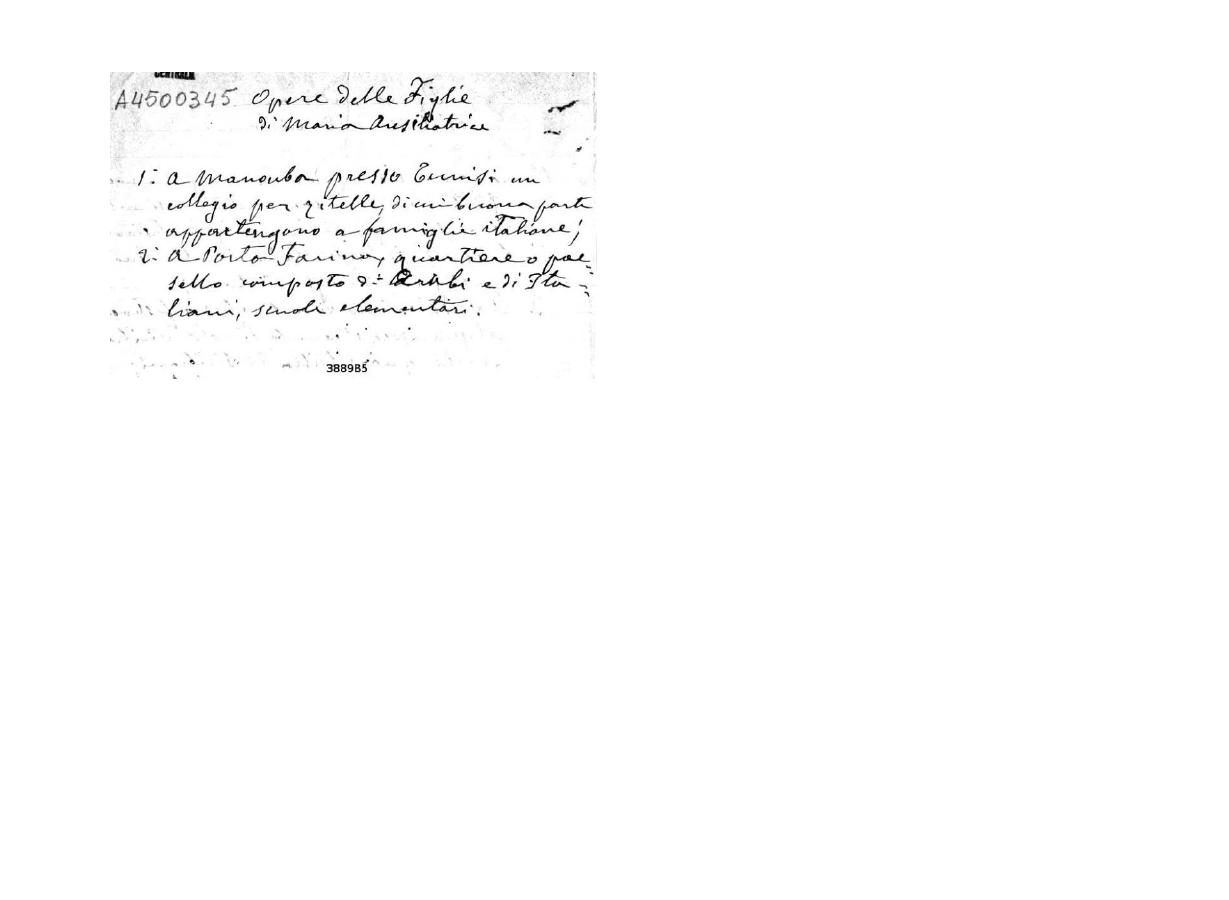 A4500345 Opere delle Figlie
di Maria Ausiliatrice
1: a Manouba presso Tunisi un
collegio per zitelle, di cui buona parte
appartengono a famiglie italiane;
2: a Porto Farina, quartiere o pae-
sello composto di Arabi e di Ita-
liani, scuole elementari.
3889B5